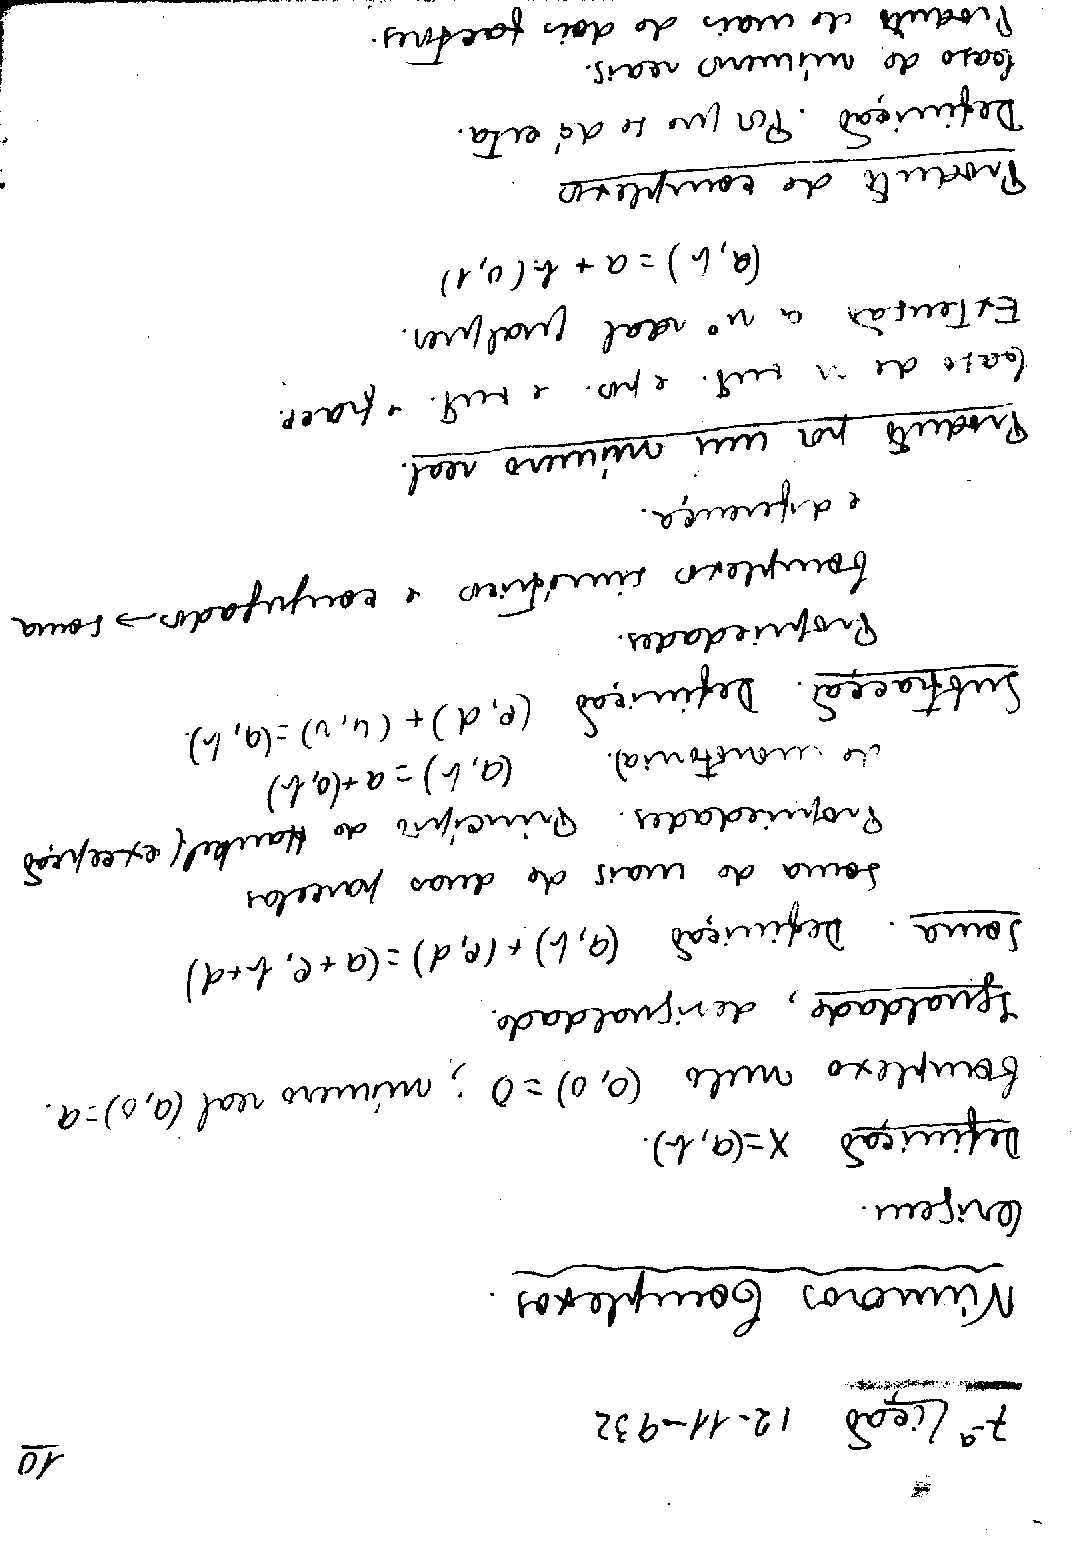 10
7ª Lição 12-11-932
Números Complexos.
Origem.
Definição X=(a,b).
Complexo nulo (0,0)=0; número real (a,0)=a.
Igualdade, desigualdade.
Soma. Definição (a,b)+(c,d)=(a+c, b+d)
Soma de mais de duas parcelas
Propriedades. Princípio de Hankel (excepção
de monotonia). (a,b)=a+(0,b)
Subtracção. Definição (c,d)+(u,v)=(a,b).
Propriedades.
Complexos simétricos e conjugados → soma
e diferença.
Produto por um número real.
Caso de nº int. e pos. e int. e fracc.
Extensão a nº real qualquer.
(a,b)=a+b.(0,1)
Produto de complexos
Definição. Por que se dá esta.
Caso de números reais.
Produto de mais de dois factores.